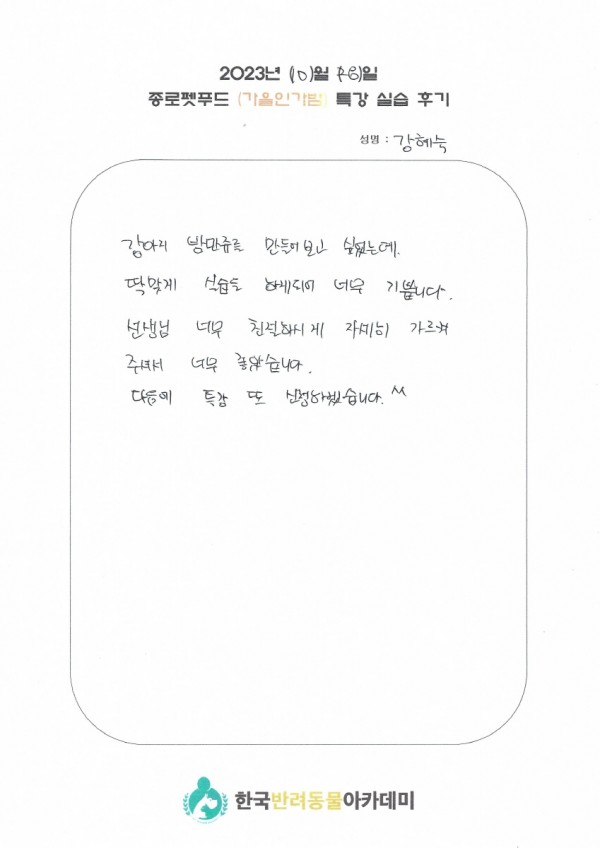 2023년 (10)월 (28)일
종로펫푸드 (가을인가밤) 특강 실습 후기
성명 : 강혜숙
강아지 밤만쥬를 만들어보고 싶었는데.
딱맞게 실습도 하게되어 너무 기쁩니다.
선생님 너무 친절하시게 자세히 가르켜
주셔서 너무 좋았습니다.
다음에 특강 또 신청하겠습니다. ^^
한국반려동물아카데미